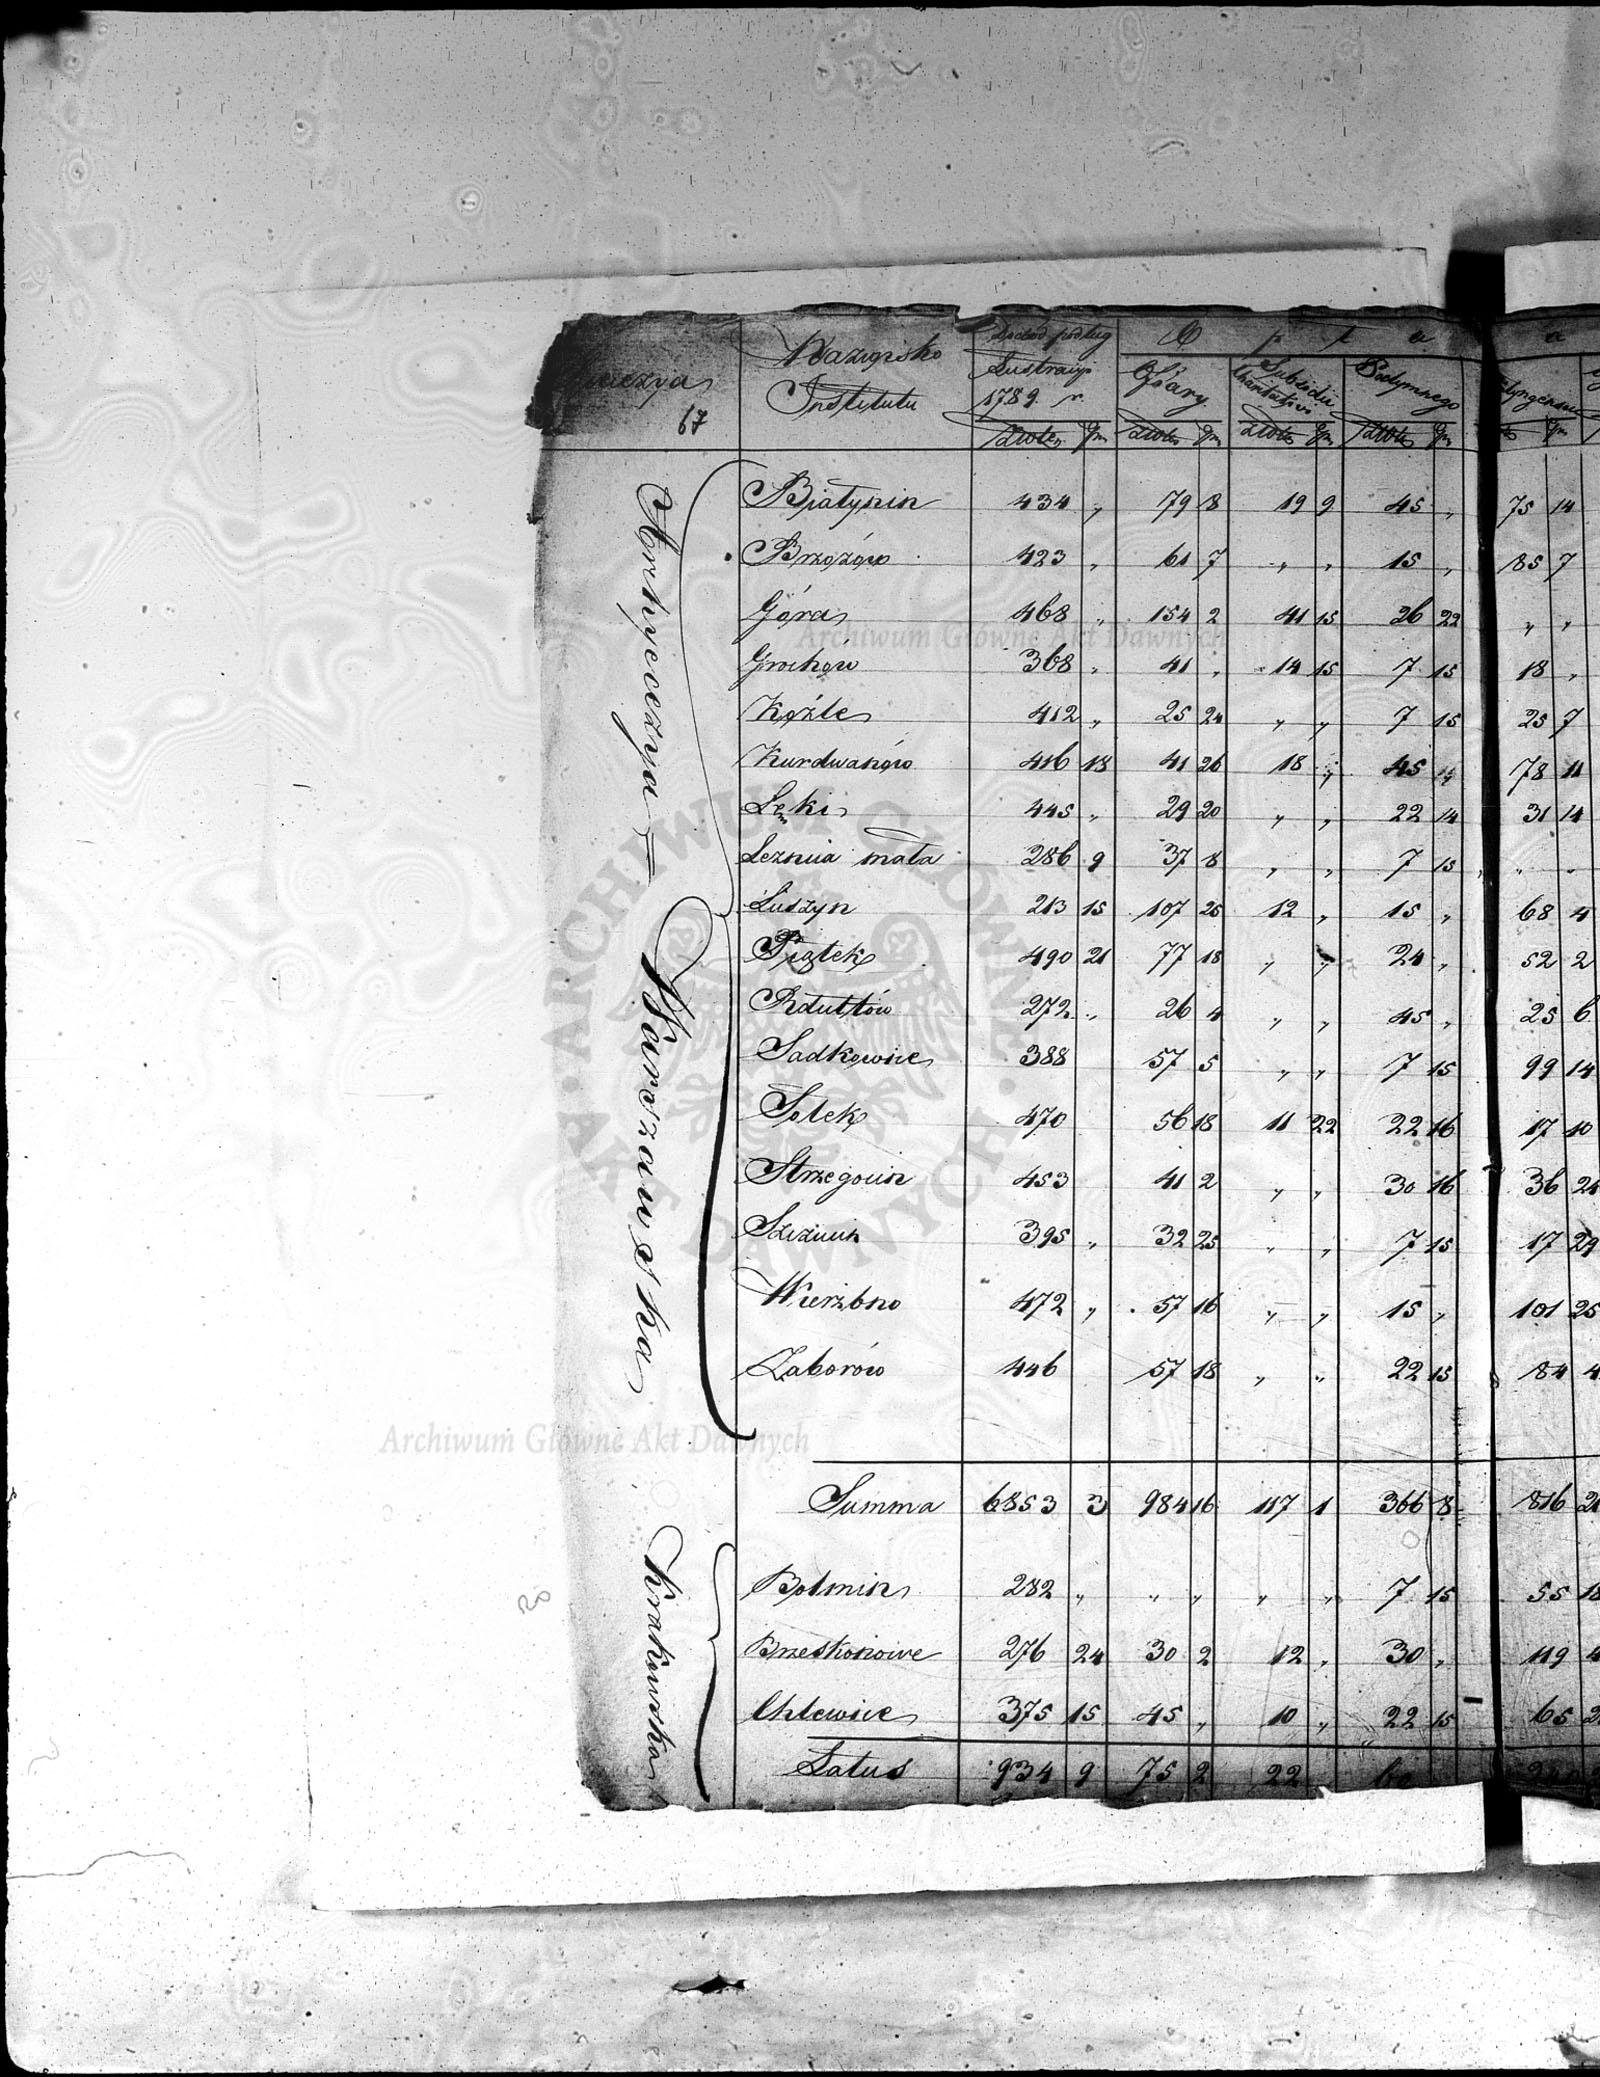 Nazwisko Institutu
Dochód podług Lustracyi 1789. r.
O p ł a
Ofiary
Subsidii Charitativi
Podymnego
67
Złote gr. Złote gr. Złote gr. Złote gr.
Archydyecezya = Warszawska
Białynin 434 „ 79 8 19 9 45 „ 75 14
Brzozów 423 „ 61 7 „ „ 15 „ 85 7
Góra 468 „ 154 2 41 15 26 22 „ „
Grochów 368 „ 41 „ 14 15 7 15 18 „
Koźle 412 „ 25 24 „ „ 7 15 25 7
Kurdwanów 416 18 41 26 18 „ 45 14 78 11
Łęki 445 „ 29 20 „ „ 22 14 31 14
Leznica mała 286 9 37 8 „ „ 7 15 „ „
Łuszyn 213 15 107 25 12 „ 15 „ 68 4
Piątek 490 21 77 18 „ „ 24 „ 52 2
Rdultów 272 „ 26 4 „ „ 45 „ 25 6
Sadkowice 388 57 5 „ „ 7 15 99 14
Solek 470 56 18 11 22 22 16 17 10
Strzegocin 453 41 2 „ „ 30 16 36 24
395 „ 32 25 „ „ 7 15 17 29
Wierzbno 472 „ 57 16 „ „ 15 „ 101 25
Zaborów 446 57 18 „ „ 22 15 84 4
Summa 6853 3 984 16 117 1 366 8 816
Krakowska
Bolmin 282 „ „ „ „ „ 7 15 55 18
276 24 30 2 12 „ 30 „ 119 4
Chlewice 375 15 45 „ 10 „ 22 15 65
Latus 934 9 75 2 22 60
Archiwum Główne Akt Dawnych
Archiwum Główne Akt Dawnych
ARCHIWUM GŁÓWNE AKT DAWNYCH